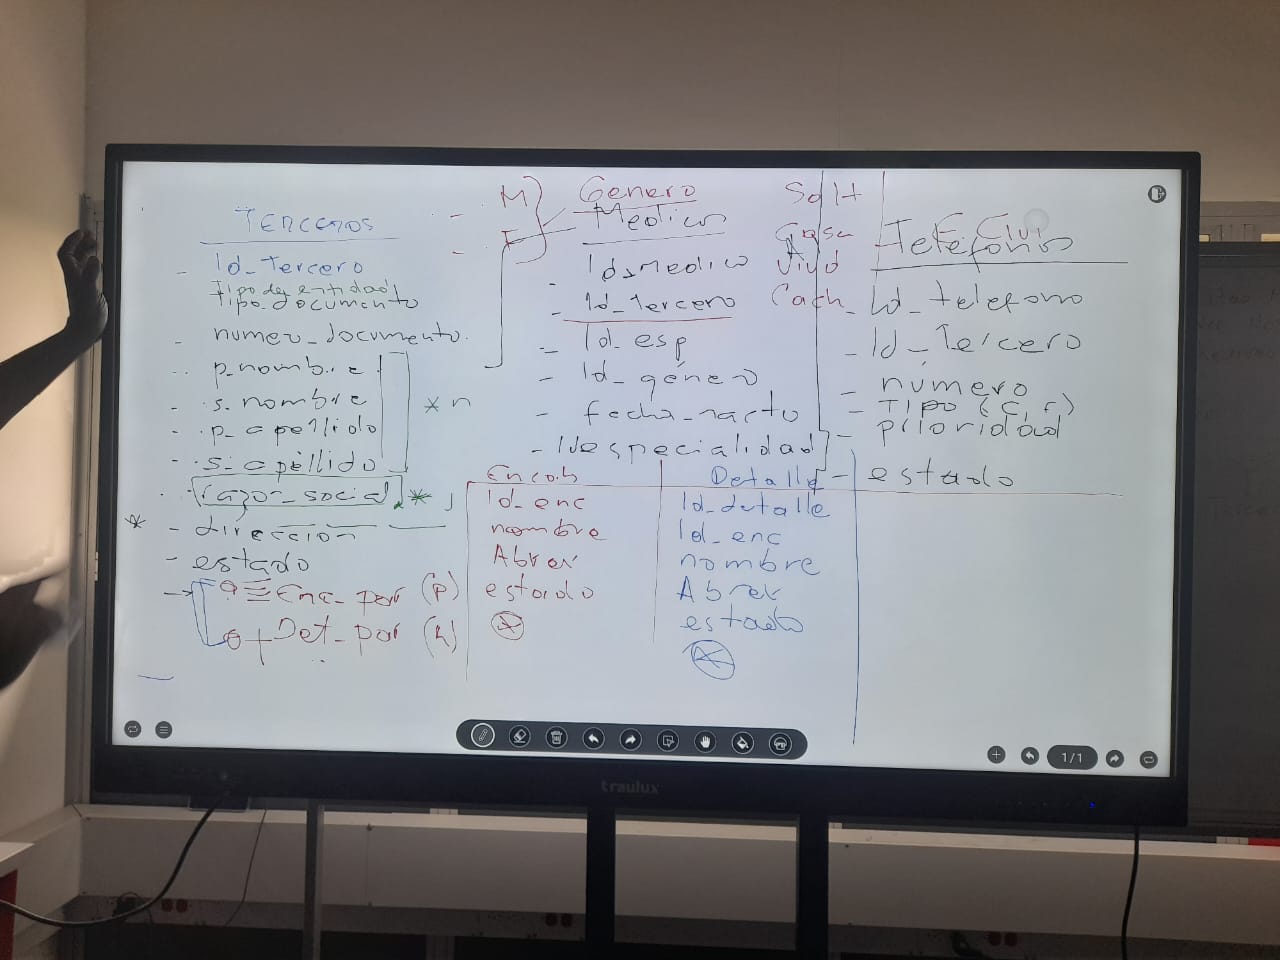 TERCEROS
- Id_Tercero
Tipo de entidad
Tipo_documento
- numero_documento.
- p_nombre
- s. nombre
- p_apellido
- s_apellido
* n
razon_social * J
* - dirección
- estado
Enc_par (p)
+ Det_par (h)
- M
- F
Genero
Medicos
- Id_Medico
- Id_Tercero
- Id_esp
- Id_género
- fecha_nacto
- Idespecialidad
Solt
Casa
Viud
Cach
E. Civi
Telefonos
- Id_telefono
- Id_Tercero
- número
- TIPO (C, F)
- prioridad
- estado
Encab
Id_enc
nombre
Abrev
estado
Detalle
Id_detalle
Id_enc
nombre
Abrev
estado
1/1
traulux